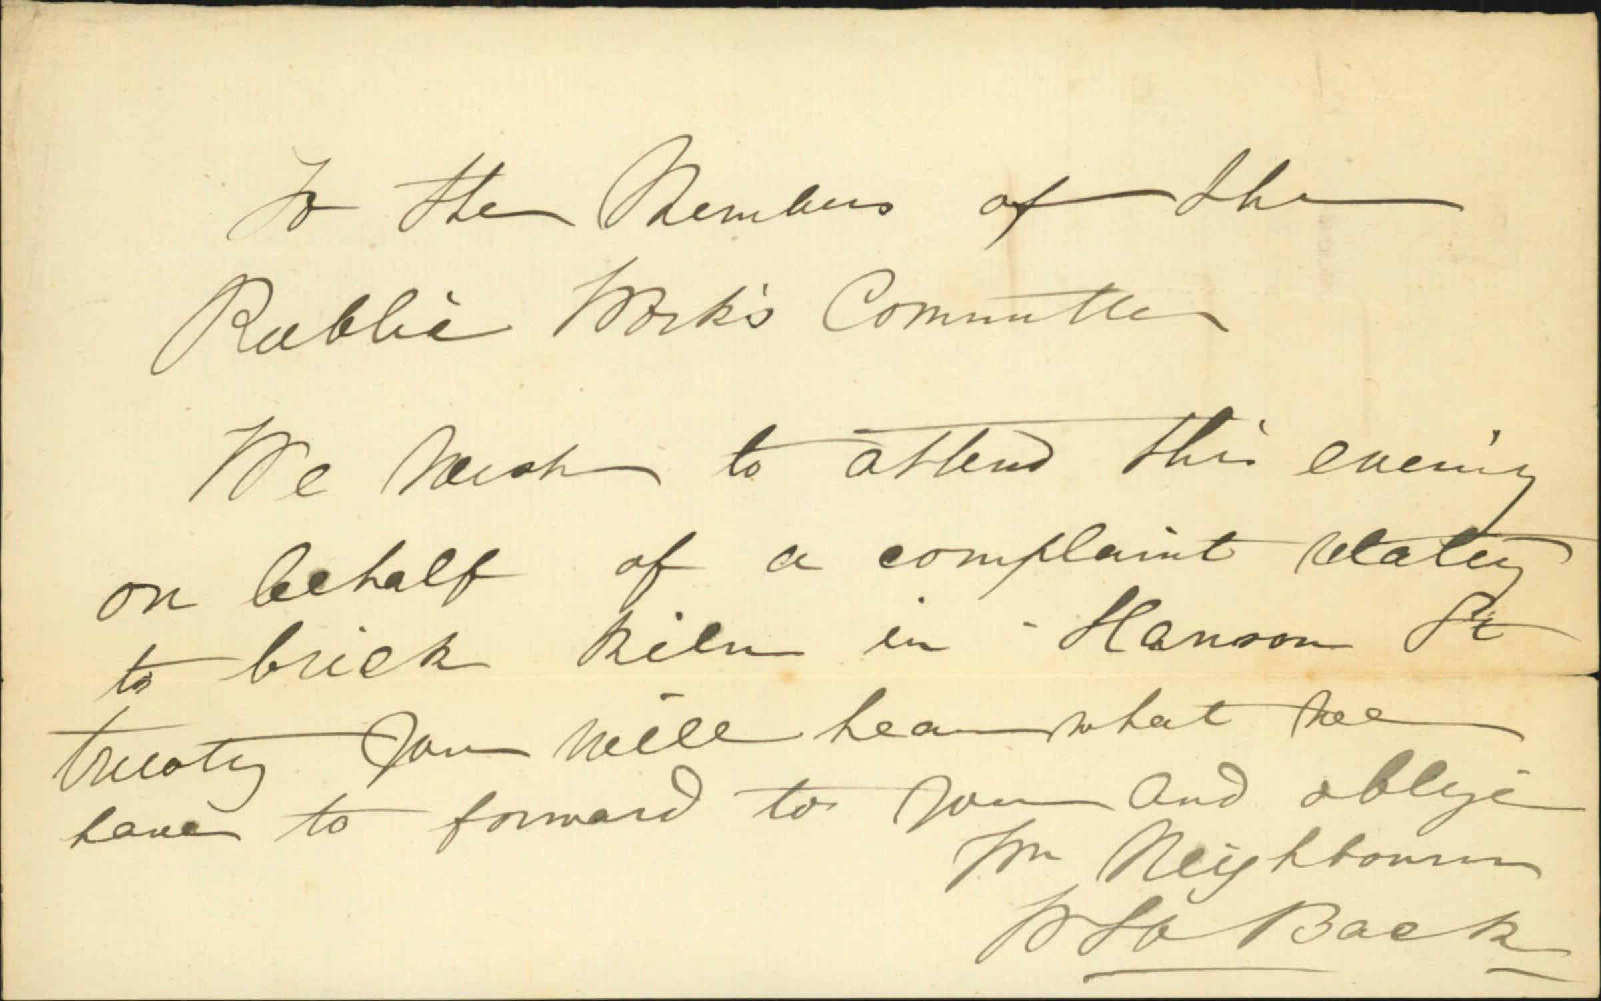 To the Members of the
Public Work's Committee
We wish to attend this evening
on behalf of a complaint relating
to brick kiln in Hanson St
trusting you will hear what we
have to forward to you and oblige
Wm Neighbour
Back